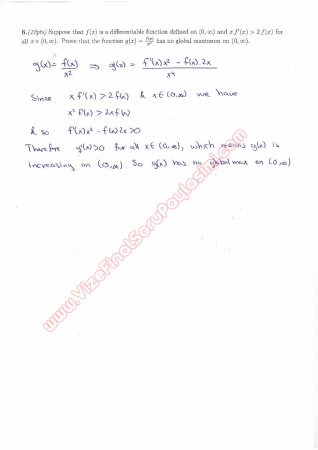 6.(12pts) Suppose that f(x) is a differentiable function defined on (0, ∞) and x f'(x) > 2 f(x) for
all x ∈ (0, ∞). Prove that the function g(x) = f(x)/x² has no global maximum on (0, ∞).
g(x) = f(x)/x² ⇒ g'(x) = (f'(x) x² - f(x).2x)/x⁴
Since x f'(x) > 2 f(x) & x ∈ (0, ∞) we have
x² f'(x) > 2x f(x)
& so f'(x) x² - f(x) 2x > 0
Therefore g'(x) > 0 for all x ∈ (0, ∞), which means g(x) is
increasing on (0, ∞) So g(x) has no global max on (0, ∞)
www.VizeFinalSoruPaylasimi.com